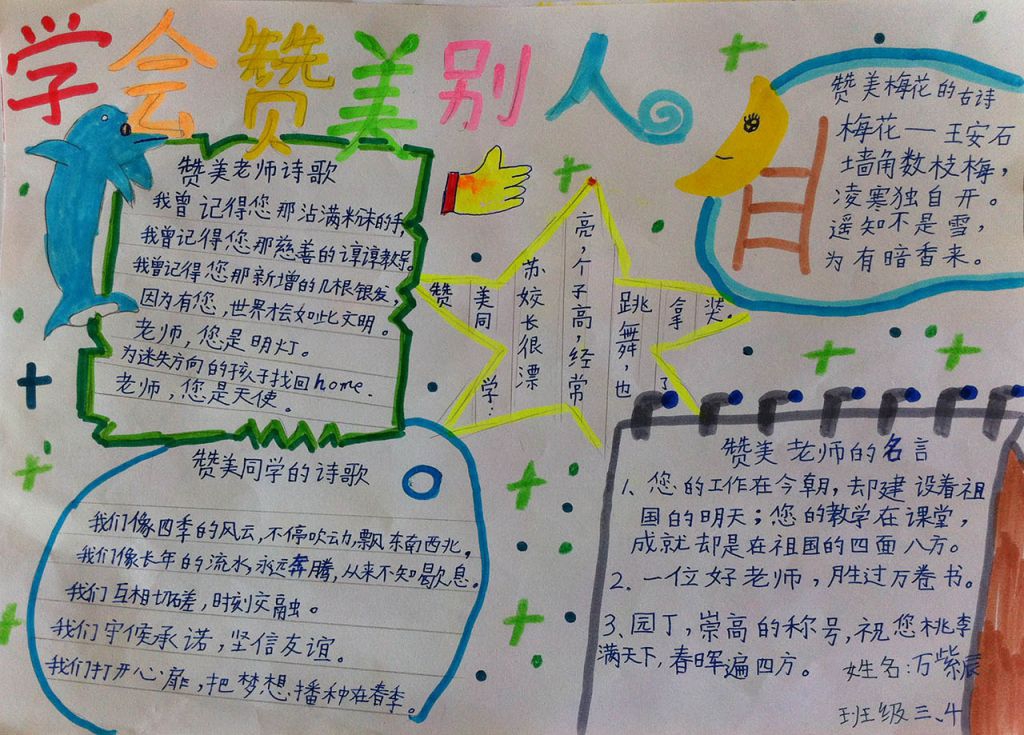 学会赞美别人
赞美老师诗歌
我曾记得您那沾满粉沫的手,
我曾记得您那慈善的谆谆教导。
我曾记得您那新增的几根银发,
因为有您,世界才会如此文明。
老师,您是明灯。
为迷失方向的孩子找回home.
老师,您是天使。
赞美同学:
苏姣长很漂
亮,个子高,经常
跳舞,也
拿了
奖。
赞美梅花的古诗
梅花—王安石
墙角数枝梅,
凌寒独自开。
遥知不是雪,
为有暗香来。
赞美同学的诗歌
我们像四季的风云,不停吹动,飘东南西北,
我们像长年的流水,永远奔腾,从来不知歇息。
我们互相切磋,时刻交融。
我们守候承诺,坚信友谊。
我们打开心扉,把梦想播种在春季。
赞美老师的名言
1、您的工作在今朝,却建设着祖
国的明天;您的教学在课堂,
成就却是在祖国的四面八方。
2、一位好老师,胜过万卷书。
3、园丁,崇高的称号,祝您桃李
满天下,春晖遍四方。
姓名:万紫辰
班级三、4